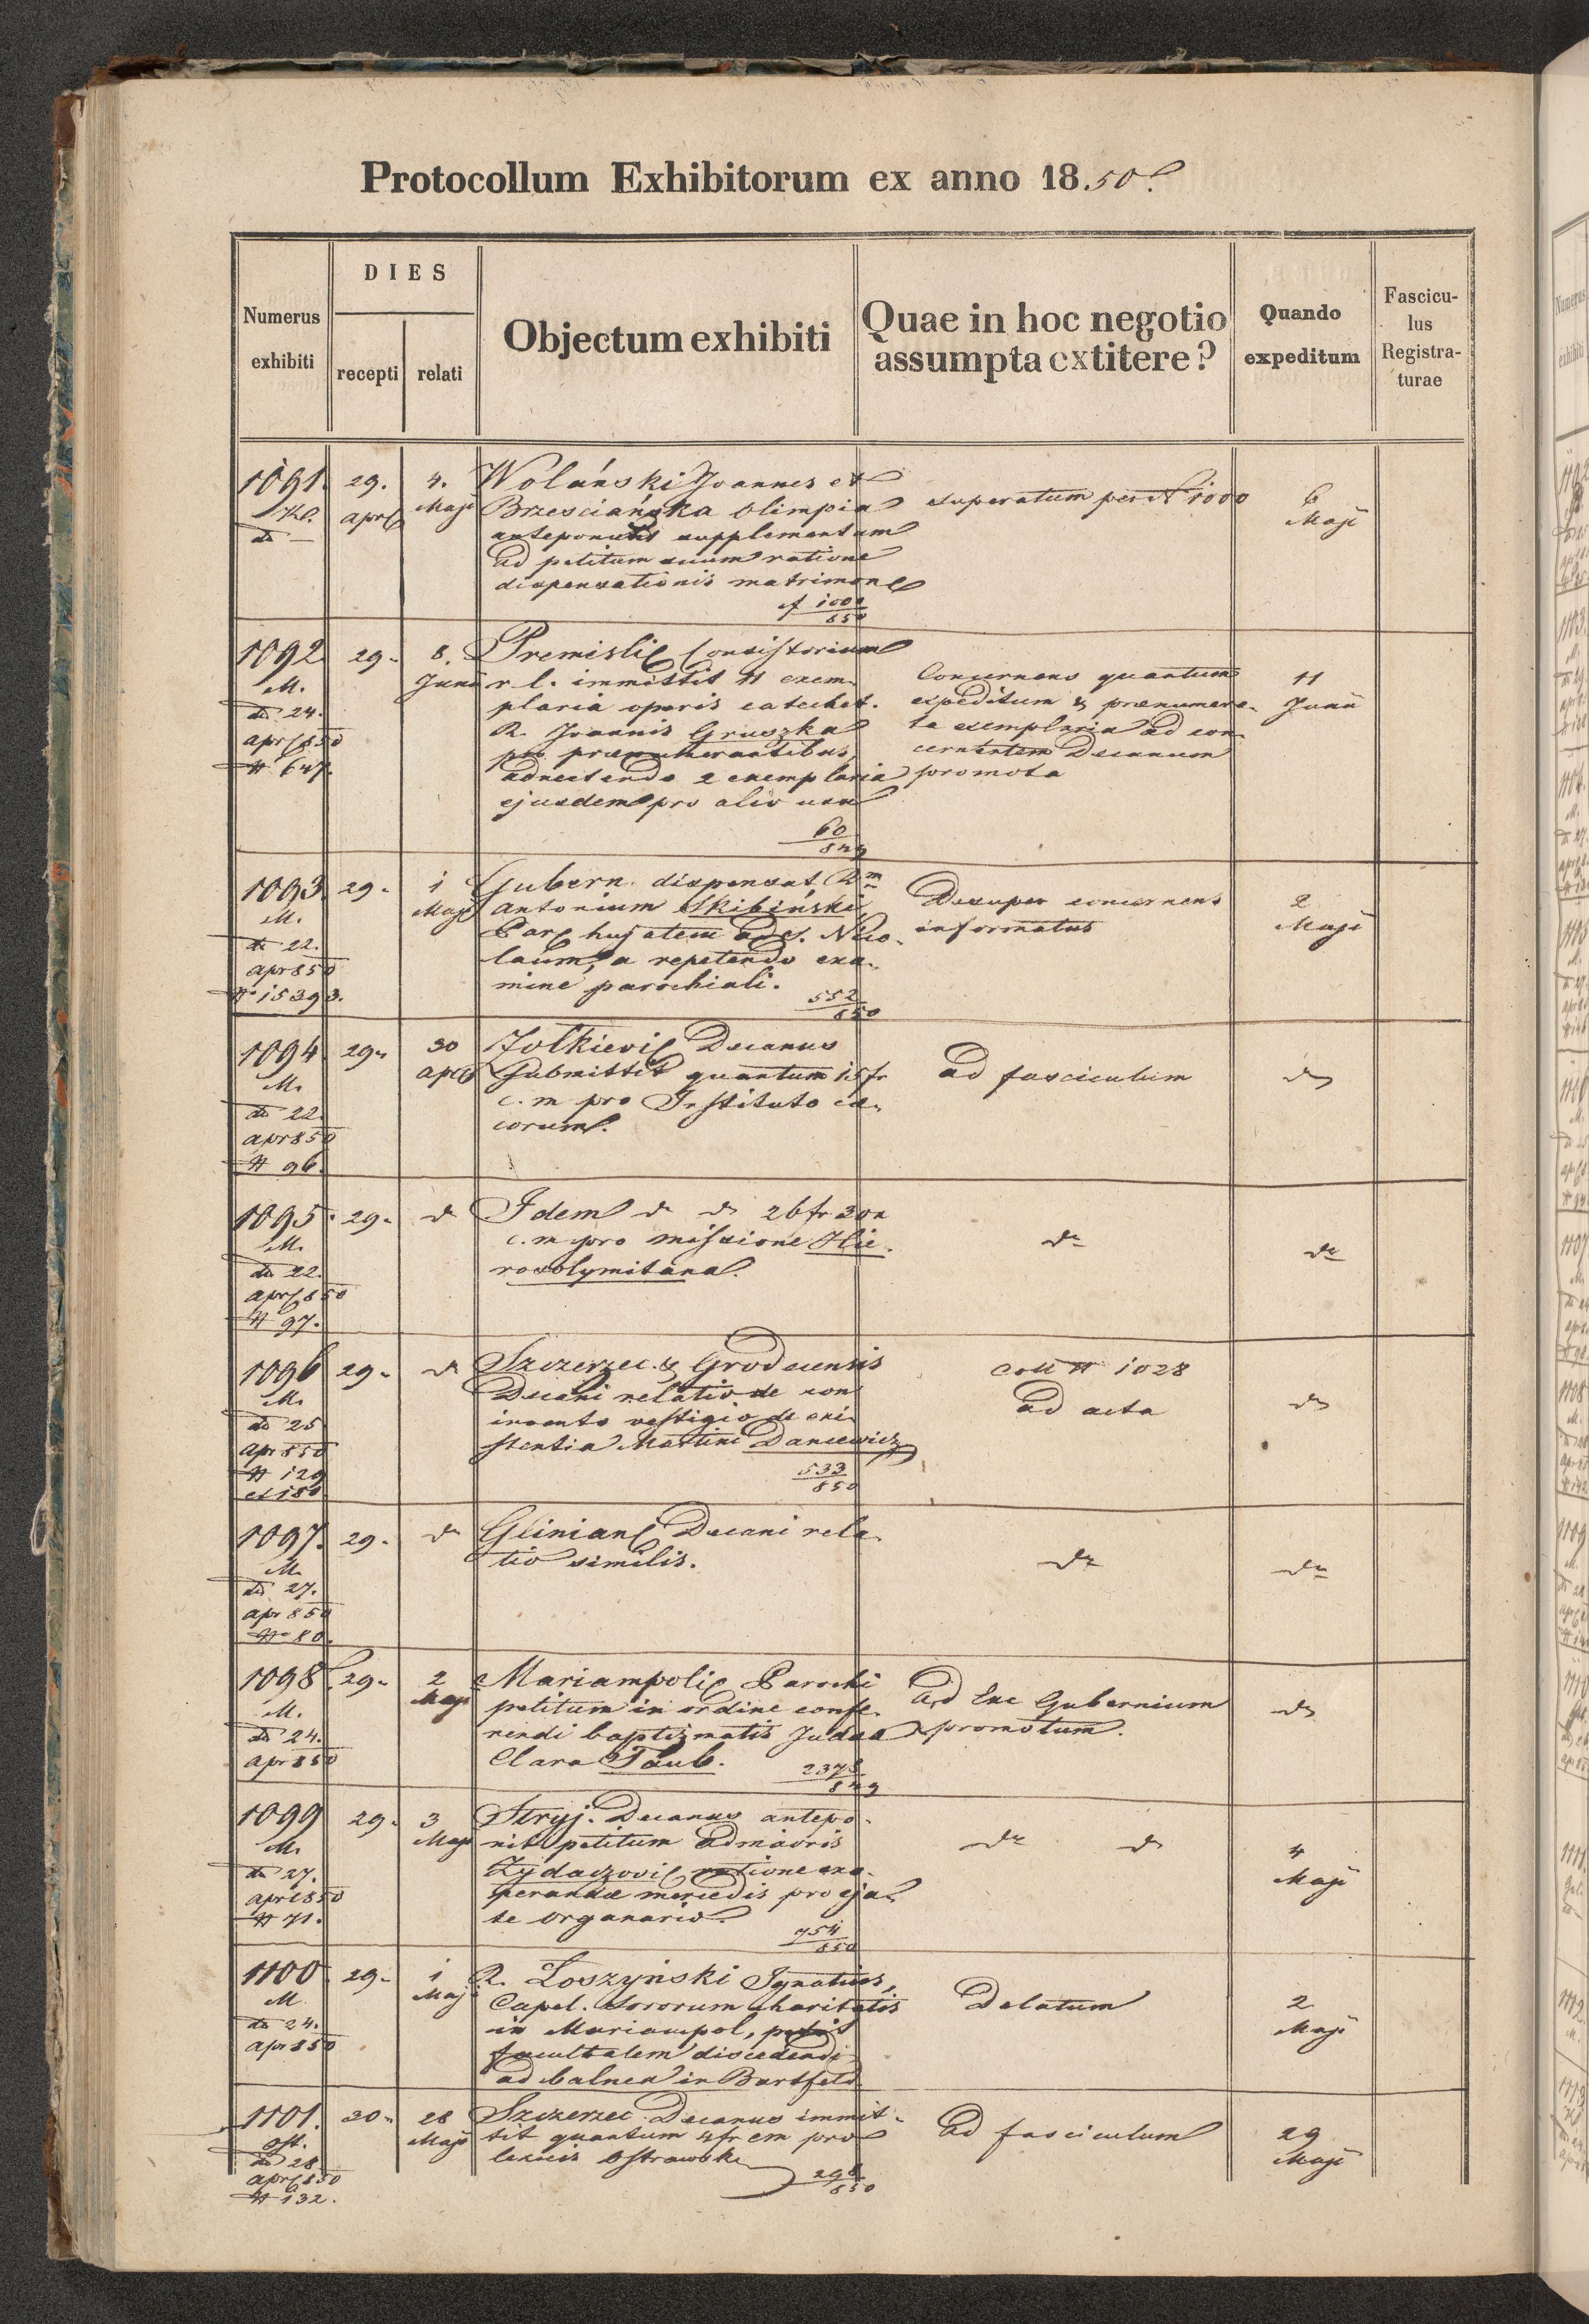 Protocollum Exhibitorum ex anno 1850
Numerus exhibiti
DIES
recepti
relati
Objectum exhibiti
Quae in hoc negotio assumpta extitere?
Quando expeditum
Fascicu-
lus
Registra-
turae
1091.
Kl.
dto —
29.
April
4.
Maji
Wolański Joannes et
Brzesciańska Olimpia
anteponunt supplementum
ad petitum suum ratione
dispensationis matrimon
cf 1000
850
superatum per N 1000
6
Maji
1092
M.
dto 24.
apr 850
N 647.
29.
8.
Junii
Premisli Consistorium
r. l. immittit 11 exem-
plaria operis catechet.
R. Joannis Gruszka
pro praenumerantibus,
adnectendo 2 exemplaria
ejusdem pro alio usu
60
849
Concernens quantum
expeditum & praenumera-
ta exemplaria ad con-
cernentem Decanum
promota
11
Junii
1093.
M.
dto 22.
apr 850
N 15393.
29.
1
Maji
Gubern. dispensat Dm
Antonium Skibiński
Par. hujatem ad S. Nico-
laum, a repetendo exa-
mine parochiali.
552
850
Desuper concernens
informatus
2
Maji
1094.
M.
dto 22.
apr 850
N 96.
29.
30
april
Zolkievi Decanus
Submittit quantum 15 fr
c. m pro Instituto cae-
corum.
ad fasciculum
do
1095.
M.
dto 22.
apr 850
N 97.
29.
do
Idem do do 26 fr 30 x
c. m pro missione Hie-
rosolymitana.
do
do
1096
M.
dto 25
apr 850
N 129
et 130
29.
do
Szczerzec. & Grodecensis
Decani relatio de non
invento vestigio de exi-
stentia Martini Dancewicz
533
850
coll N 1028
ad acta
do
1097.
M.
dto 27.
apr 850
N 80.
29.
do
Glinian Decani rela-
tio similis.
do
do
1098.
M.
dto 24.
apr 850
29.
2
Maji
Mariampoli Parochi
petitum in ordine confe-
rendi baptismatis Judaea
Clara Taub.
2378
849
Ad Exc Gubernium
promotum.
do
1099
M.
dto 27.
april 850
N 71.
29.
3
Maji
Stryj. Decanus antepo-
nit petitum
Zydaczovi ratione exa-
perandae mercedis pro eja-
te organario.
754
850
do do
4
Maji
1100.
M
dto 24.
apr 850
29.
1
Maj
R. Łoszyński Ignatius,
Capel. Sororum charitatis
in Mariampol, petit
facultatem discedendi
ad balnea in Bartfeld
Delatum
2
Maji
1101.
ost.
dto 28
apr 850
N 132.
30.
28
Maji
Szczerzec Decanus immit-
tit quantum 4 fr cm pro
Ostrowsk
298
850
Ad fasciculum
29
Maji